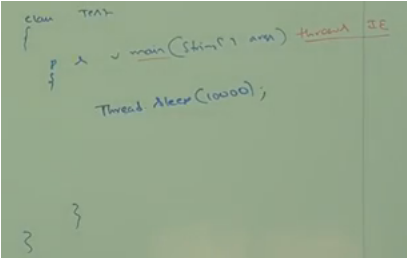 class Test
{
p s v main(String[] args) throws IE
{
Thread.sleep(10000);
}
}